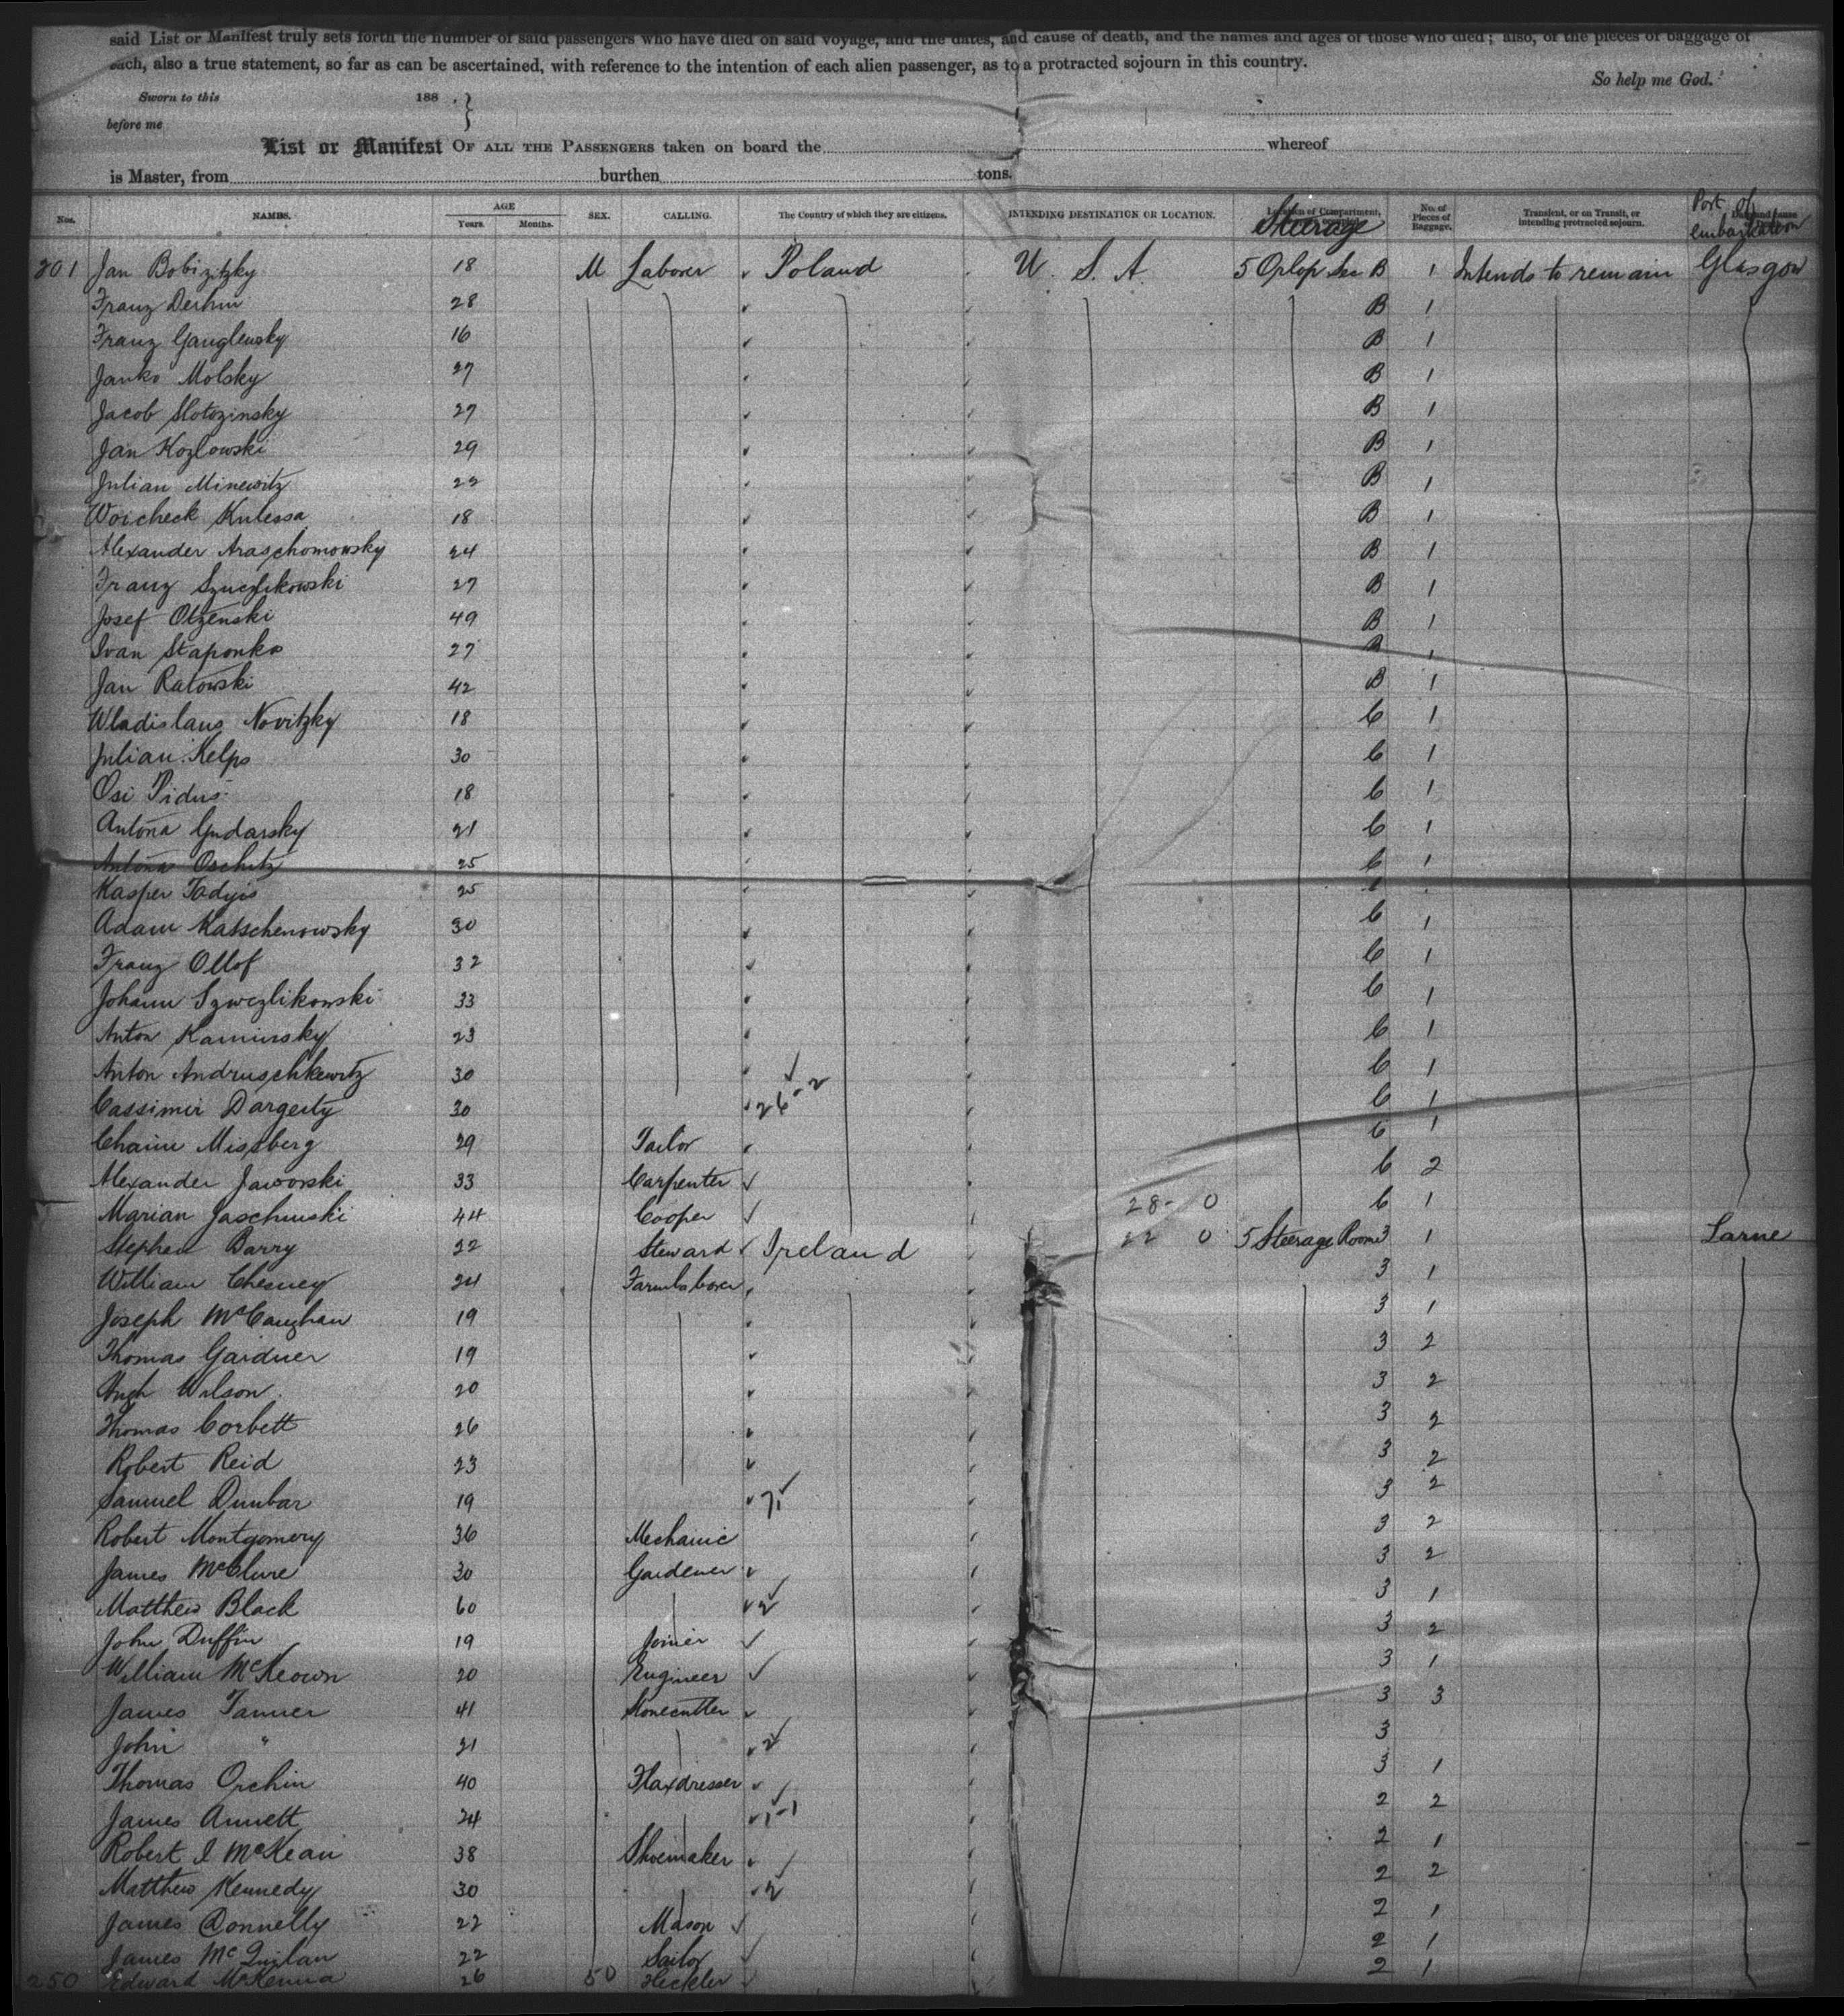 said List or Manifest truly sets forth the number of said passengers who have died on said voyage, and the dates, and cause of death, and the names and ages of those who died; also, of the pieces of baggage of
each, also a true statement, so far as can be ascertained, with reference to the intention of each alien passenger, as to a protracted sojourn in this country.
So help me God.
Sworn to this 188 . }
before me
List or Manifest OF ALL THE PASSENGERS taken on board the whereof
is Master, from burthen tons.
Nos. NAMES. AGE Years. Months. SEX. CALLING. The Country of which they are citizens. INTENDING DESTINATION OR LOCATION. Location of Compartment, Steerage No. of Pieces of Baggage. Transient, or on Transit, or intending protracted sojourn. Port of embarkation
201 Jan Bobizitzky 18 M Laborer Poland U. S. A. 5 Orlop B 1 Intends to remain Glasgow
Franz 28 B 1
Franz Ganglewsky 16 B 1
Janko Molsky 27 B 1
Jacob Slotozinsky 27 B 1
Jan Kozlowski 29 B 1
Julian Minewitz 22 B 1
Woicheck Kulessa 18 B 1
Alexander Araschomowsky 24 B 1
Franz Szuczlikowski 27 B 1
Josef Olzenski 49 B 1
Ivan Staponko 27 B 1
Jan Ratowski 42 B 1
Wladislaus Novitzky 18 C 1
Julian Kelps 30 C 1
Osi Pidus 18 C 1
Antona Gudarsky 21 C 1
Antona Oschitz 25 C 1
Kasper Tadyis 25 C
Adam Katschenowsky 30 C 1
Franz Ollof 32 C 1
Johann Szwczlikowski 33 C 1
Anton Kaminsky 23 C 1
Anton Andruschkewitz 30 C 1
Cassimir Dargeity 30 26-2 C 1
Chaim Missberg 29 Tailor C 1
Alexander Jaworski 33 Carpenter C 2
Marian Jaschinski 44 Cooper 28- 0 C 1
Stephen Barry 22 Steward Ireland 22 0 5 Steerage Room 3 1 Larne
William Chesney 24 Farmlaborer 3 1
Joseph McCaughan 19 3 1
Thomas Gardner 19 3 2
Hugh Wilson 20 3 2
Thomas Corbett 26 3 2
Robert Reid 23 3 2
Samuel Dunbar 19 7 3 2
Robert Montgomery 36 Mechanic 3 2
James McClure 30 Gardener 3 2
Matthew Black 60 2 3 1
John Duffin 19 Joiner 3 2
William McKeown 20 Engineer 3 1
James Tanner 41 Stonecutter 3 3
John " 21 2 3
Thomas Orchin 40 Flaxdresser 3 1
James Annett 24 1-1 2 2
Robert J McKean 38 Shoemaker 2 1
Matthew Kennedy 30 2 2 2
James Connelly 22 Mason 2 1
James McQuilan 22 Sailor 2 1
250 Edward McKenna 26 50 Heckler 2 1